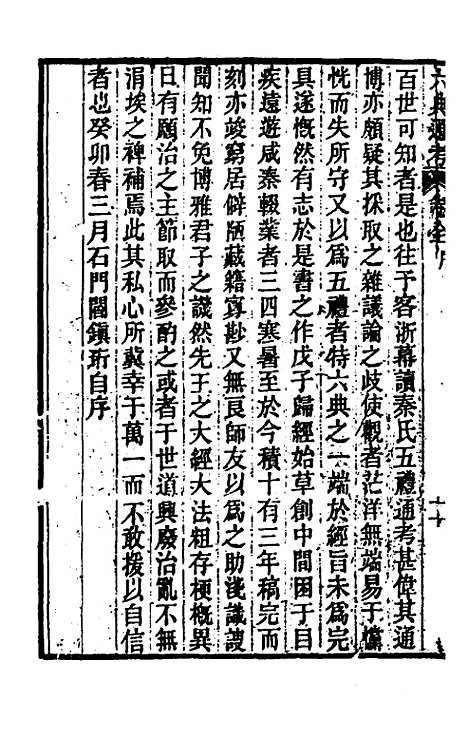 六典通考
百世可知者是也往于客浙幕讀秦氏五禮通考甚偉其通
博亦頗疑其採取之雜議論之歧使觀者茫洋無端易于懭
恍而失所守又以爲五禮者特六典之一端於經旨未爲完
具遂慨然有志於是書之作戊子歸經始草創中間困于目
疾遠遊咸秦輟業者三四寒暑至於今積十有三年稿完而
刻亦竣窮居僻陋藏籍寡尠又無良師友以爲之助後識謏
聞知不免博雅君子之譏然先王之大經大法粗存梗概異
日有願治之主節取而參酌之或者于世道興廢治亂不無
涓埃之裨補焉此其私心所冀幸于萬一而不敢援以自信
者也癸卯春三月石門閻鎮珩自序